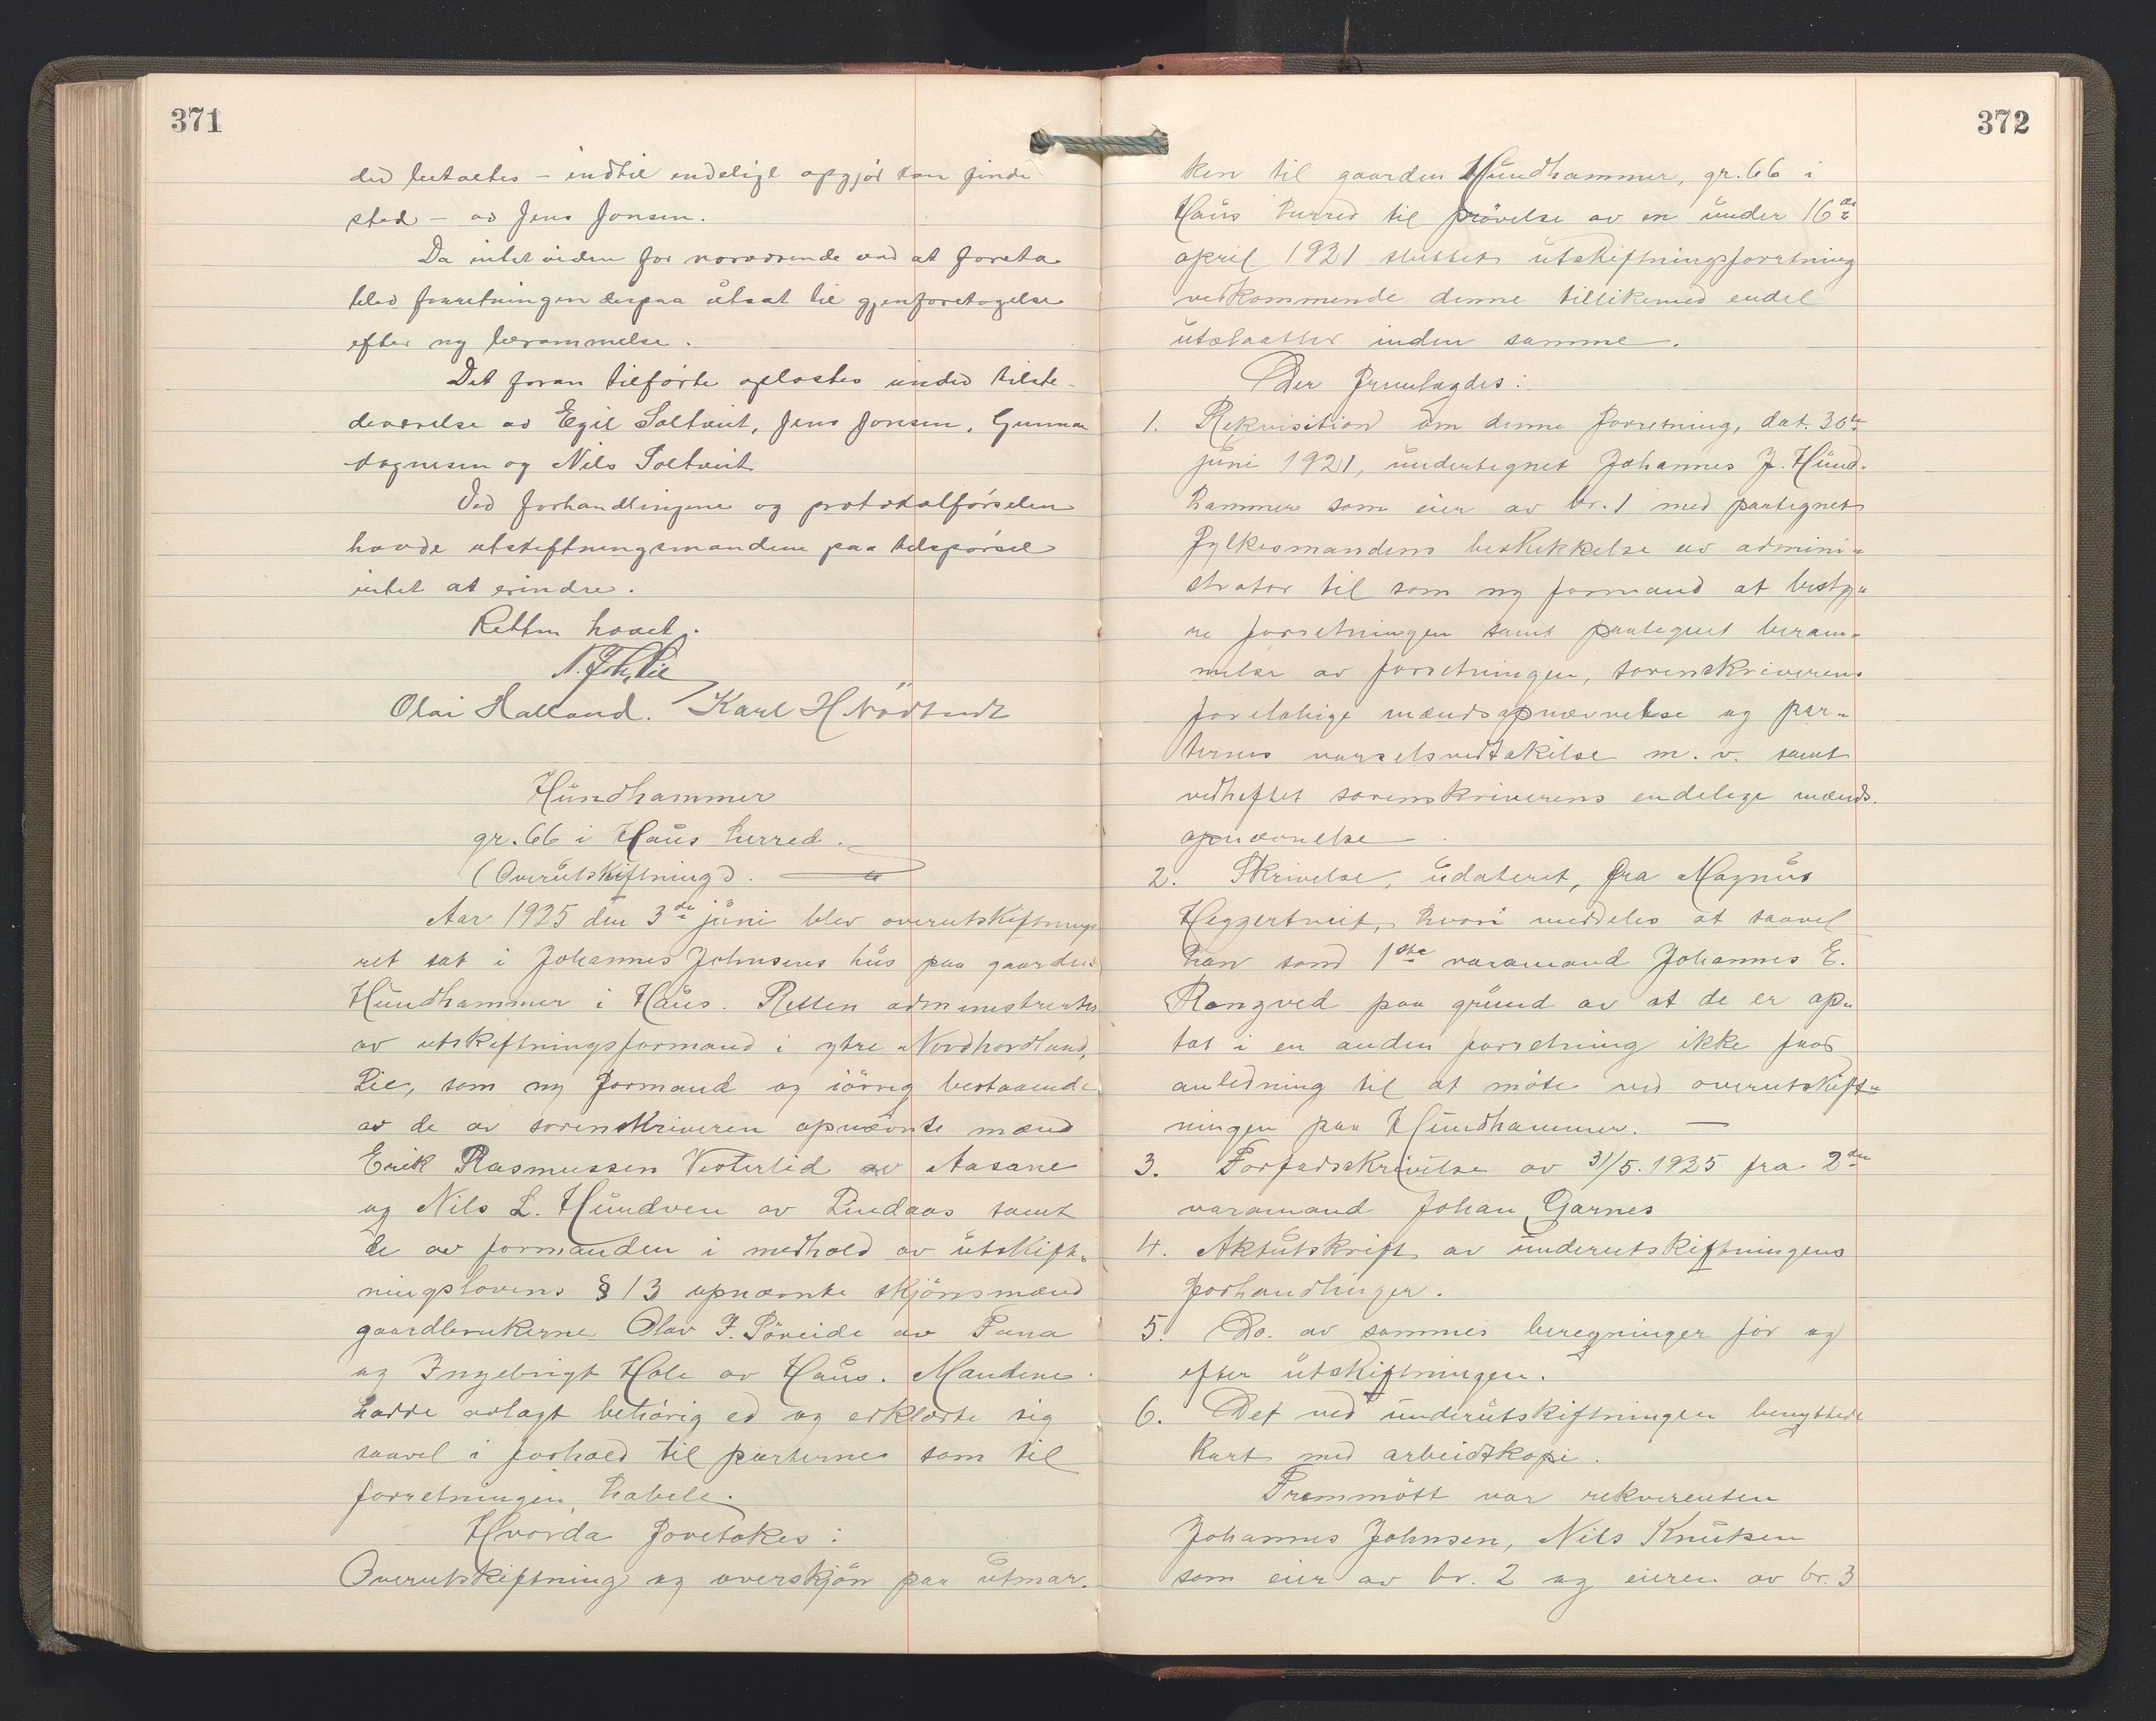 371
der betaltes - indtil endelige opgjör kan finde
sted - av Jens Jonsen.
Da intet videre for nærværende var at foreta
blev forretningen derpaa utsat til gjenforetagelse
efter ny berammelse.
Det foran tilförte oplæstes under tilste-
deværelse av Egil Soltveit, Jens Jonsen, Gunnar
Magnesen og Nils Soltveit
Ved forhandlingene og protokolförselen
havde utskiftningsmændene paa tilspörsel
intet at erindre.
Retten hævet.
N. Joh. Lie
Olai Halland. Karl H
Hundhammer
gr. 66 i Haus herred.
(Overutskiftning).
Aar 1925 den 3de juni blev overutskiftnings
ret sat i Johannes Johnsens hus paa gaarden
Hundhammer i Haus. Retten administrertes
av utskiftningsformand i ytre Nordhordland,
Lie, som ny formand og iövrig bestaaende
av de av sorenskriveren opnævnte mænd
Erik Rasmussen Vesterlid av Aasane
og Nils L. Hundven av Lindaas samt
de av formanden i medhold av utskift-
ningslovens § 13 opnævnte skjönsmænd
gaardbrukerne Olav J. Söreide av Fana
og Ingebrigt Hole av Haus. Mændene
hadde avlagt behörig ed og erklærte sig
saavel i forhold til parterne som til
forretningen habile.
Hvorda foretokes:
Overutskiftning og overskjön paa utmar-
372
ken til gaarden Hundhammer, gr. 66 i
Haus herred til prövelse av en under 16de
april 1921 sluttet utskiftningsforretning
vedkommende denne tillikemed endel
utslaatter inden samme.
Der fremlagdes:
1. Rekvisition om denne forretning, dat. 30te
juni 1921, undertegnet Johannes J. Hund-
hammer som eier av br. 1 med paategnet
Fylkesmandens beskikkelse av admini-
strator til som ny formand at besty-
re forretningen samt paategnet beram-
melse av forretningen, sorenskriverens
forelöbige mændsopnævnelse og par-
ternes varselsvedtakelse m. v. samt
vedheftet sorenskriverens endelige mænds-
opnævnelse
2. Skrivelse, udateret, fra Magnus
Heggertveit, hvori meddeles at saavel
han som 1ste varamand Johannes E.
Rongved paa grund av at de er op-
tat i en anden forretning ikke faar
anledning til at möte ved overutskift-
ningen paa Hundhammer.
3. Forfaldsskrivelse av 31/5. 1925 fra 2den
varamand Johan Garnes
4. Aktutskrift av underutskiftningens
forhandlinger.
5. Do. av sammes beregninger för og
efter utskiftningen.
6. Det ved underutskiftningen benyttede
kart med arbeidskopi.
Fremmött var rekvirenten
Johannes Johnsen, Nils Knutsen
som eier av br. 2 og eieren av br. 3